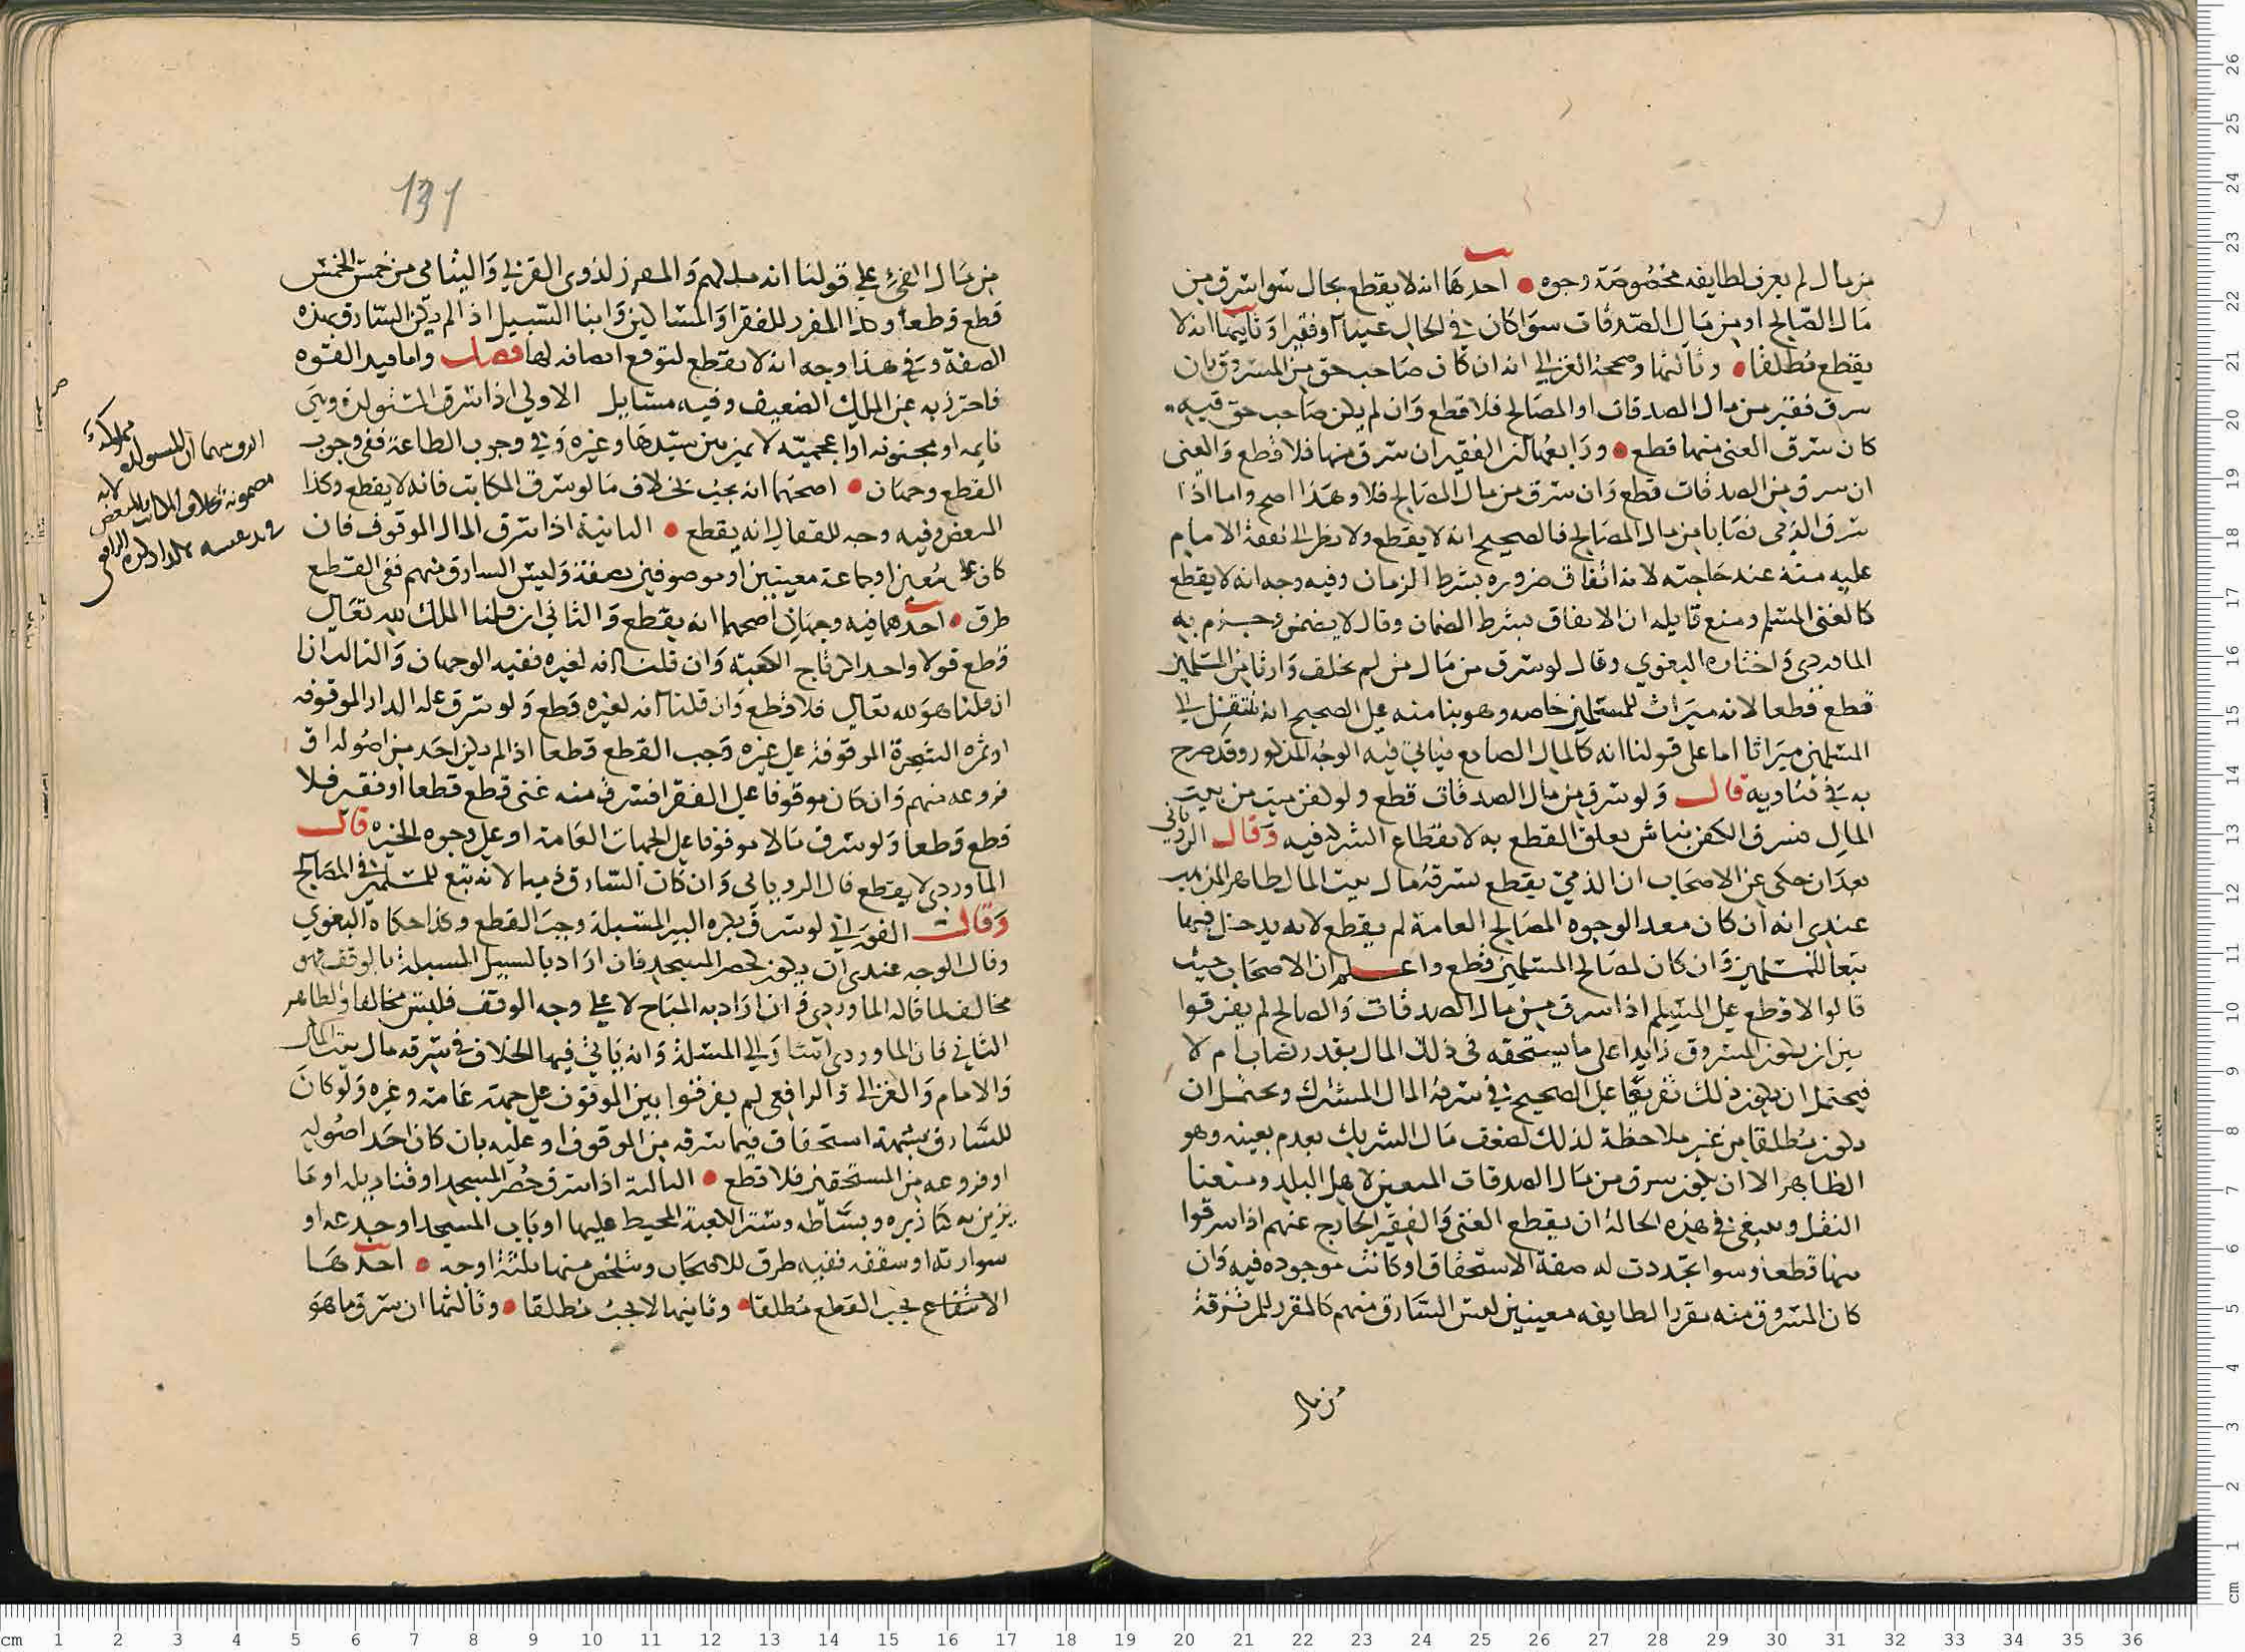 من مال لم يفرز لطايفه مخصوصة وجوه • احدها انه لا يقطع بحال سوا سرق من
مال الصالح او من مال الصدقات سوا كان في الحال غنيا او فقيرا وثانيها انه لا
يقطع مطلقا • وثالثها وصححه الغزالي انه ان كان صاحب حق من المسروق بان
سرق فقير من مال الصدقات او المصالح فلا قطع وان لم يكن صاحب حق فيه
كان سرق الغنى منها قطع • ورابعها ان الفقير ان سرق منها فلا قطع والغنى
ان سرق من الصدقات قطع وان سرق من مال المصالح فلا وهذا اصح واما اذا
سرق الذمى نصابا من مال المصالح فالصحيح انه لا يقطع ولا نظر الى نفقة الامام
عليه منه عند حاجته لانه انفاق ضروره بشرط الزمان وفيه وجه انه لا يقطع
كالغنى المسلم ومنع قايله ان الانفاق بشرط الضمان وقال لا يضمن وجزم به
الماوردى واختاره البغوي وقال لو سرق من مال من لم يخلف وارثا من المسلمين
قطع قطعا لانه ميراث للمسلمين خاصه وهو بنا منه على الصحيح انه ينتقل الى
المسلمين ميراثا اما على قولنا انه كالمال الضايع فياتي فيه الوجه المذكور وقد صرح
به في فتاويه قال ولو سرق من مال الصدقات قطع ولو كفن ميت من بيت
المال فسرق الكفن نباش تعلق القطع به لانقطاع الشركه فيه وقال الروياني
بعد ان حكى عن الاصحاب ان الذمي يقطع بسرقة مال بيت المال لظاهر المذهب
عندى انه ان كان معدا لوجوه المصالح العامة لم يقطع لانه يدخل فيها
تبعا للمسلمين وان كان لمصالح المسلمين قطع واعلم ان الاصحاب حيث
قالوا لا قطع على المسلم اذا سرق من مال الصدقات والصالح لم يفرقوا
بين ان يكون المسروق زايدا على ما يستحقه فى ذلك المال بقدر نصاب ام لا
فيحتمل ان يكون ذلك تفريعا على الصحيح في سرقة المال المشترك ويحتمل ان
يكون مطلقا من غير ملاحظة لذلك لضعف مال الشريك بعدم بعينه وهو
الظاهر الا ان يكون سرق من مال الصدقات المتعين لاهل البلد ومنعنا
النقل وينبغى في هذه الحالة ان يقطع الغنى والفقير الخارج عنهم اذا سرقوا
منها قطعا وسوا تجددت له صفة الاستحقاق او كانت موجوده فيه وان
كان المسروق منه مقررا لطايفه معينين ليس السارق منهم كالمقرر للمرتزقة
من مال
131
من مال الفيء على قولنا انه ملكهم والمفرز لذوى القربى واليتامى من خمس الخمس
قطع قطعا وكذا المفرد للفقرا والمساكين وابنا السبيل اذا لم يكن السارق بهذه
الصفة وفي هذا وجه انه لا يقطع لتوقع اتصافه لها فصل واما قيد القوه
فاحترز به عن الملك الضعيف وفيه مسايل الاولى اذا سرق المستولدة وهى
نايمه او مجنونه او اعجميته لا تميز بين سيدها وغيره في وجوب الطاعة ففى وجوب
القطع وجهان • اصحهما انه يجب بخلاف ما لو سرق المكاتب فانه لا يقطع وكذا
المبعض وفيه وجه للقفال انه يقطع • الثانية اذا سرق المال الموقوف فان
كان على معين او جماعة معينين او موصوفين بصفة وليس السارق منهم ففى القطع
طرق • احدها فيه وجهان اصحهما انه يقطع والثاني ان قلنا الملك لله تعالى
قطع قولا واحدا كرتاج الكعبة وان قلنا انه لغيره ففيه الوجهان والثالث ان
ان قلنا هو لله تعالى فلا قطع وان قلنا انه لغيره قطع ولو سرق غله الدار الموقوفه
او ثمره الشجرة الموقوفة على غيره وجب القطع قطعا اذا لم يكن احد من اصوله او
فروعه منهم وان كان موقوفا على الفقرا فسرق منه غنى قطع قطعا او فقير فلا
قطع قطعا ولو سرق مالا موقوفا على الجهات العامة او على وجوه الخير قال
الماوردى لا يقطع قال الروياني وان كان السارق ذميا لانه تبع للمسلمين في المصالح
وقال الفوراني لو سرق بكره البير المسبلة وجب القطع وكذا حكاه البغوي
وقال الوجه عندى ان يكون كحصر المسجد فان اراد بالسبيل المسبلة بالوقف فهو
مخالف لما قاله الماوردى وان اراد به المباح لا على وجه الوقف فليس مخالفا والظاهر
الثاني فان الماوردى اشار الى المسلة وانه ياتي فيها الخلاف في سرقه مال بيت المال
والامام والغزالى والرافعى لم يفرقوا بين الموقوف على جهة عامة وغيره ولو كان
للسارق شبهة استحقاق فيما سرقه من الموقوف او عليه بان كان احد اصوله
او فروعه من المستحقين فلا قطع • الثالثة اذا سرق حصر المسجد او قناديله او ما
يزين به كتازيره وبساطه وستر الكعبة المحيط عليها او باب المسجد او جدعه او
سواريه او سقفه ففيه طرق للاصحاب وتلخص منها ثلثة اوجه • احدها
الاستقاع يجب القطع مطلقا • وثانيها لا يجب مطلقا • وثالثها ان سرق ما هو